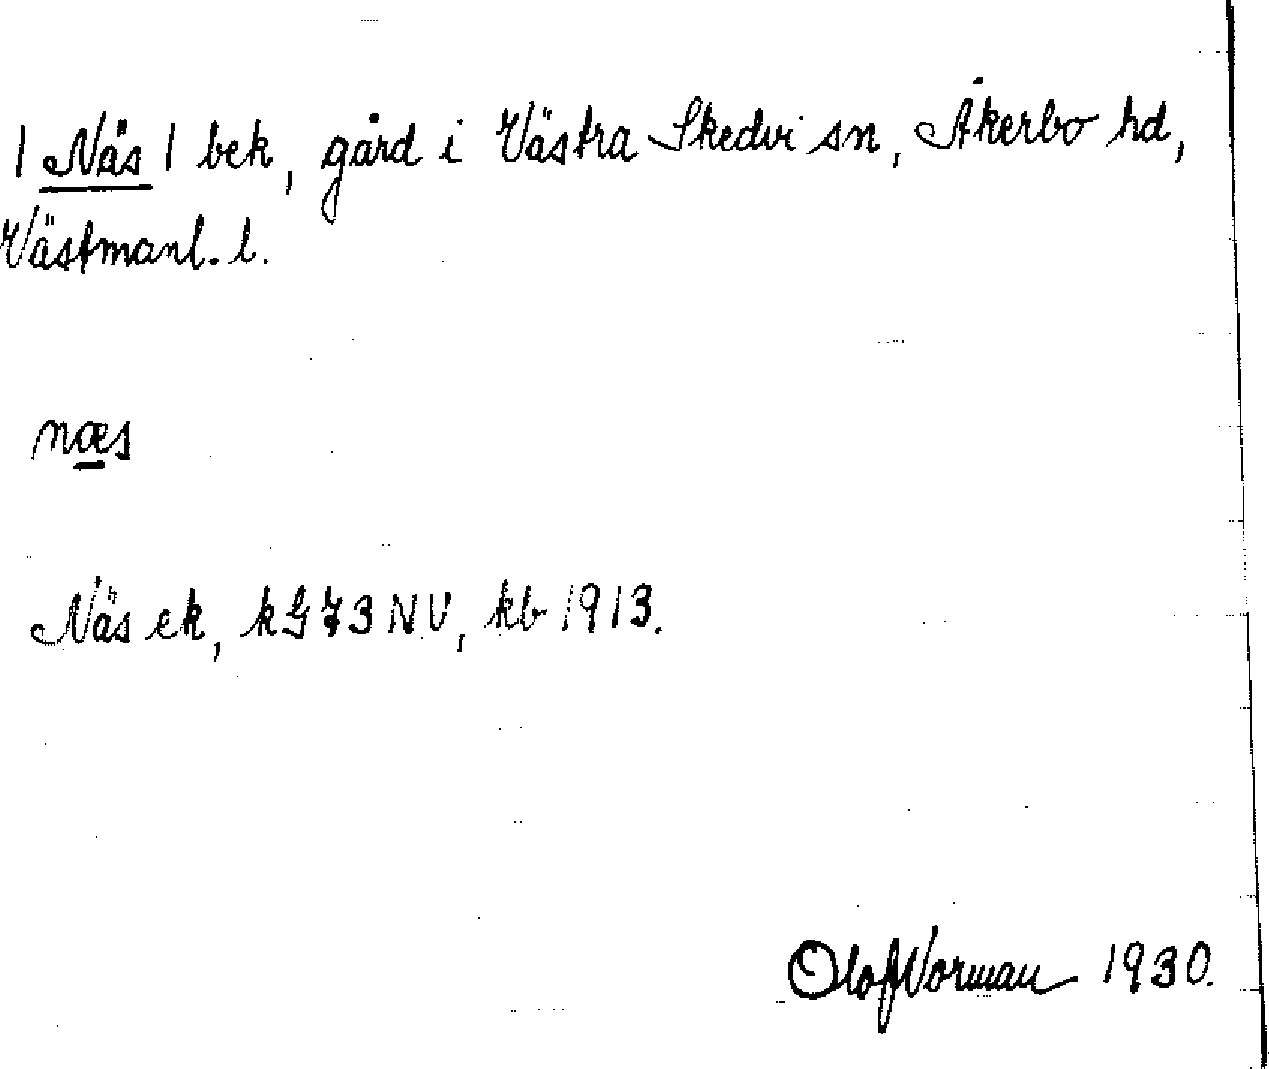 | Näs | bek, gård i Västra Skedvi sn, Åkerbo hd,
Västmanl. l.
næs
Näs ek, kG73NV, kb 1913.
Olof Norman 1930.